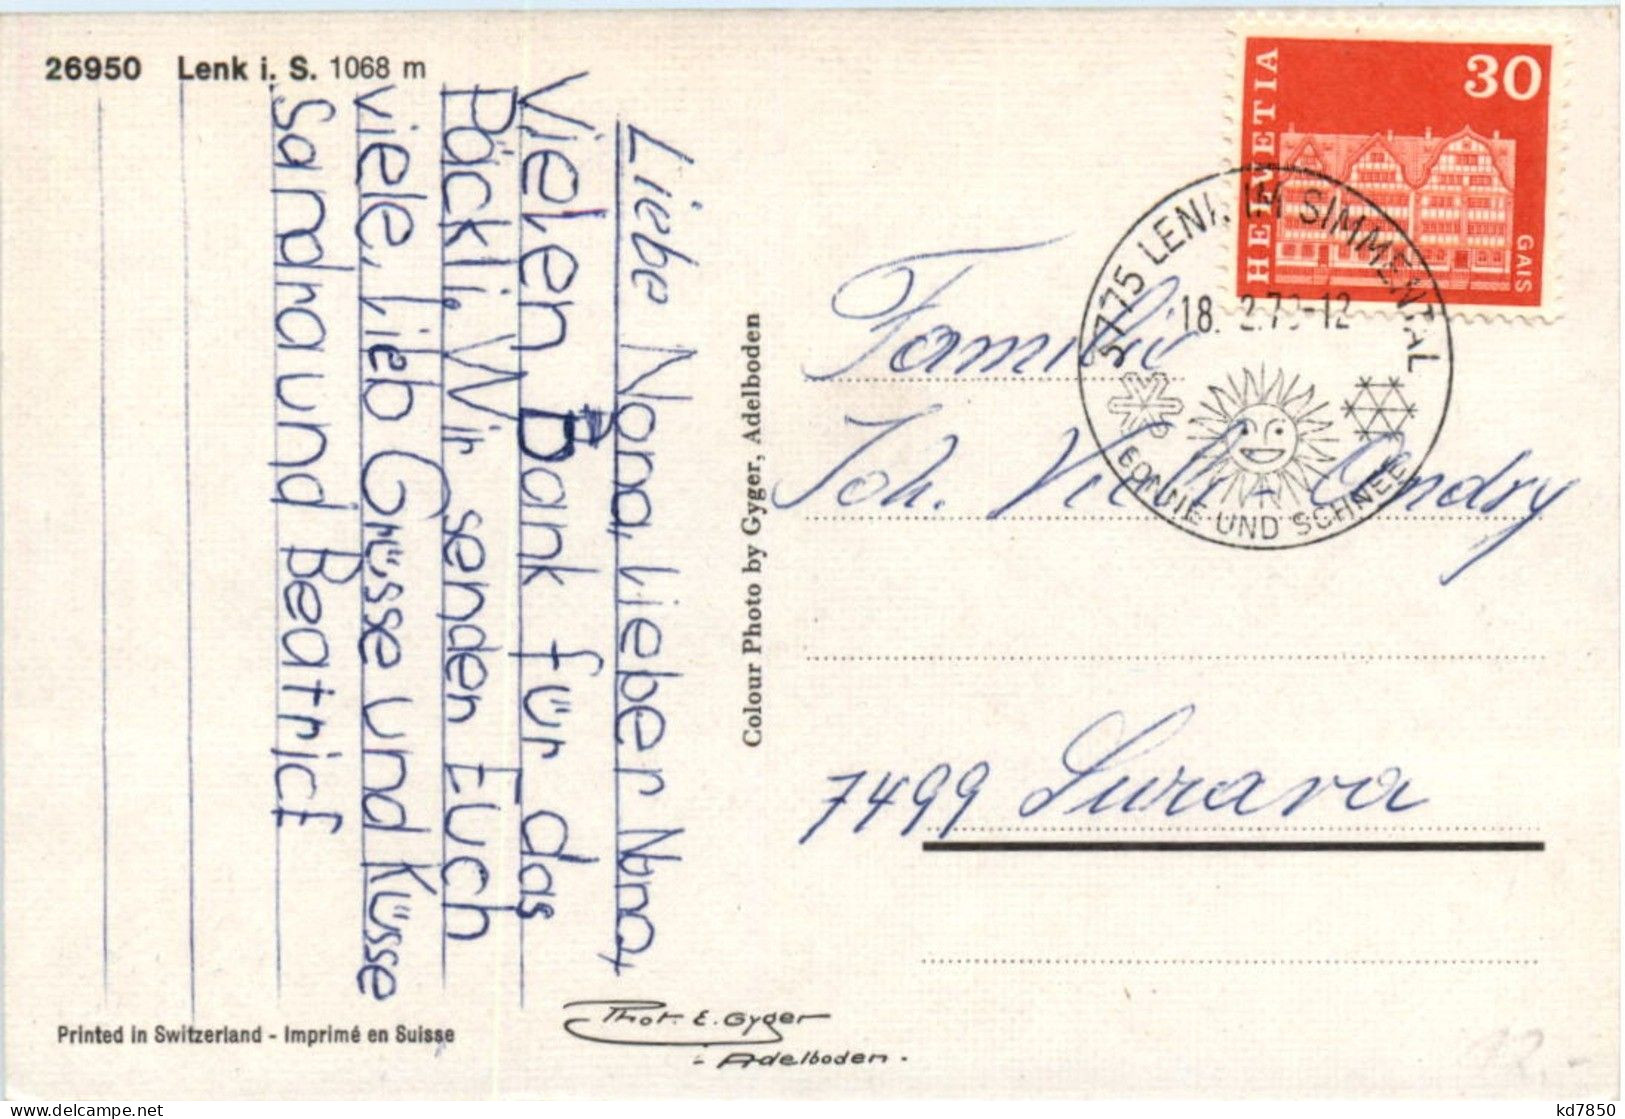 26950 Lenk i. S. 1068 m
Liebe Nona, Lieber Nona,
Vielen Dank für das
Päckli. Wir senden Euch
viele, Lieb Grüsse und Küsse
Sandra und Beatrice
Printed in Switzerland - Imprimé en Suisse
Colour Photo by Gyger, Adelboden
Phot. E. Gyger
- Adelboden -
HELVETIA
30
GAIS
3775 LENK IM SIMMENTAL
18. 2.7 -12
SONNE UND SCHNEE
Familie
Joh.
7499 Surava
12,-
kd7850